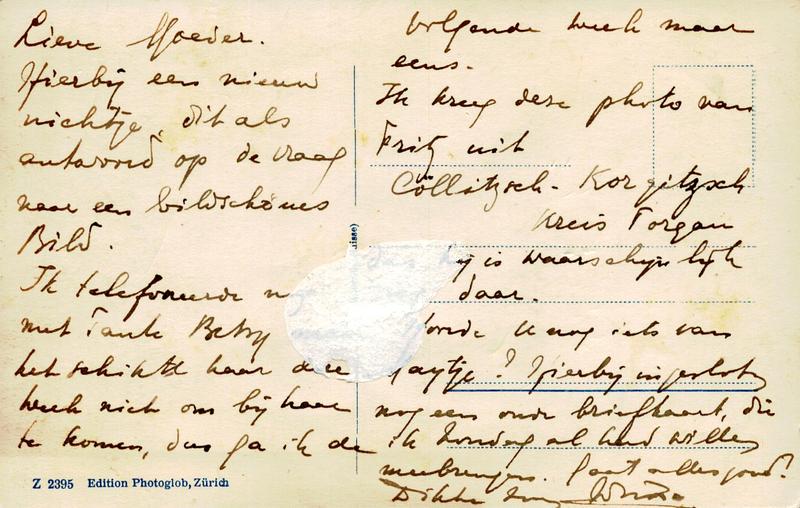 Lieve Moeder.
Hierbij een nieuw
nichtje, dit als
antwoord op de vraag
naar een bildschönes
Bild.
Ik telefoneerde
met Tante Betsy
het schikte haar deze
week niet om bij haar
te komen, dus ga ik de
Z 2395 Edition Photoglob, Zürich
volgende week maar
eens.
Ik kreeg deze photo van
Fritz uit
Cöllitzsch - Korgitzsch
Kreis Torgau
hij is waarschijnlijk
daar.
Hoorde U nog iets van
? Hierbij ingesloten
nog een oude briefkaart, die
ik Zondag al had willen
meebrengen. Gaat alles goed?
Dikke zoen